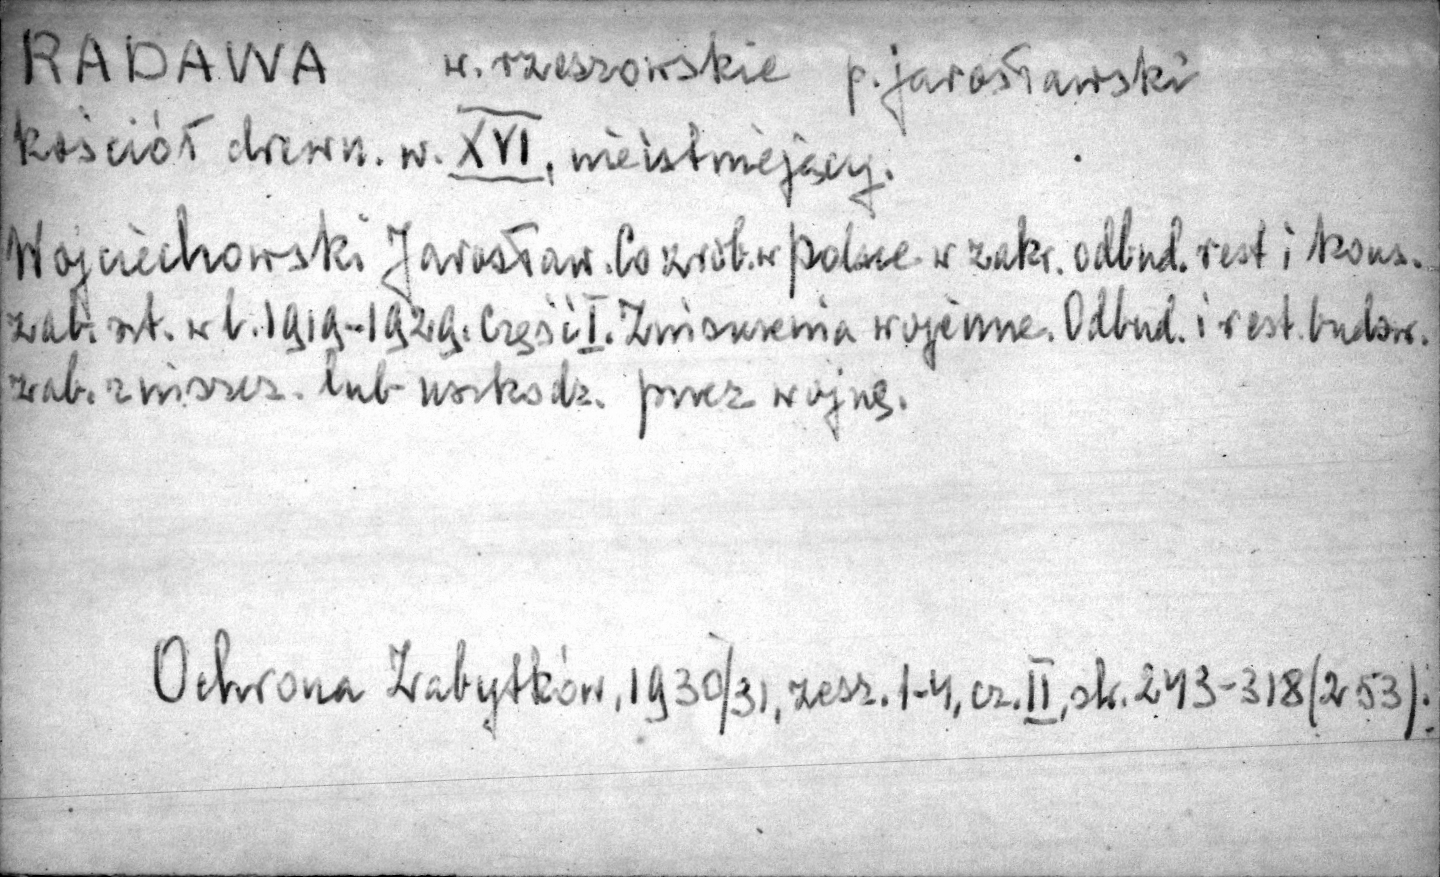 RADAWA w. rzeszowskie p. jarosławski
kościół drewn. w. XVI, nieistniejący.
Wojciechowski Jarosław. Co zrob. w Polsce w zakr. odbud. rest i kons.
zab. szt. w l. 1919-1929. Część I. Zniszczenia wojenne. Odbud. i rest. budow.
zab. zniszcz. lub uszkodz. przez wojnę.
Ochrona Zabytków, 1930/31, zesz. 1-4, cz. II, str. 243-318 (253).